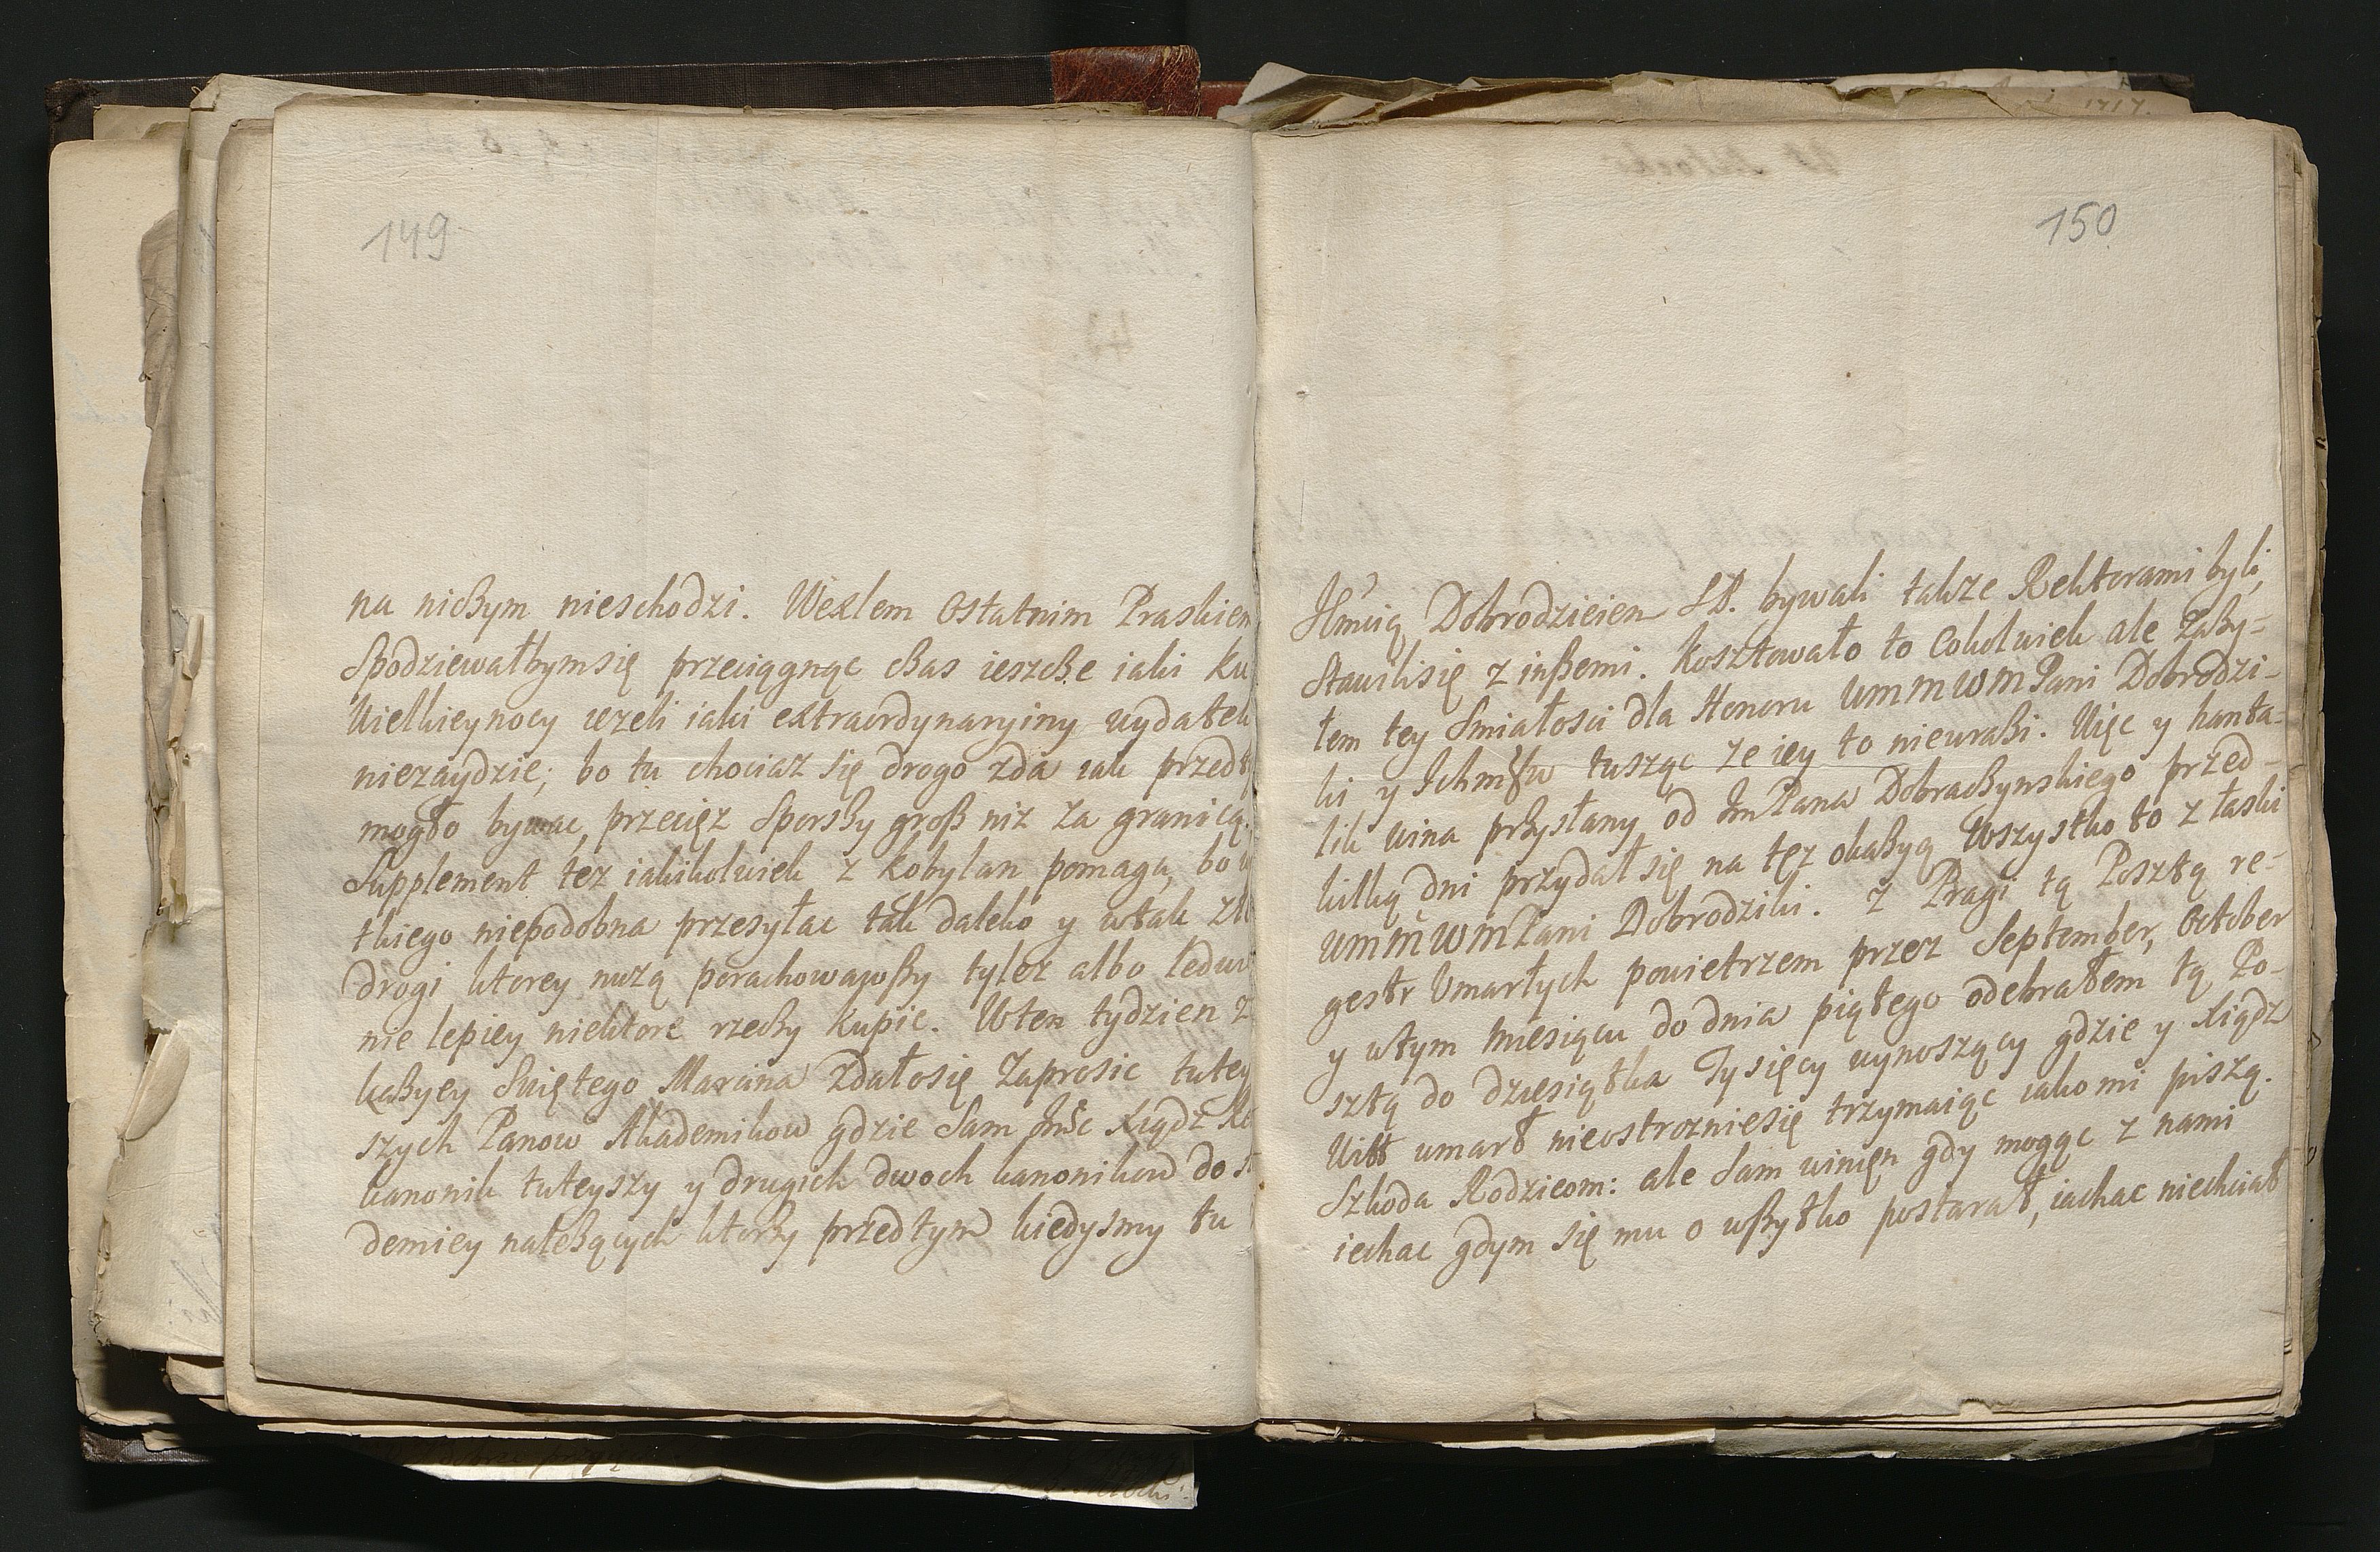 149
na niczym nieschodzi. Wexlem Ostatnim Praskiem
Spodziewałbymsię przeciągnąc czas ieszcze iaki ku
Wielkieynocy iezeli iaki extraordynaryiny wydatek
niezaydzie; bo tu chociaz się drogo zda iak przedt
mogło bywac, przecięz sporszy grosz niz za granicą.
Supplement tez iakikolwiek z Kobylan pomaga, bo w
tkiego niepodobna przesyłac tak daleko y wtak złe
drogi ktorey nuzą porachowawszy tylez albo ledwi
nie lepiey niektore rzeczy kupic. Wten tydzien z
kazyey Swiętego Marcina zdałosię Zaprosic tutey
szych Panow Akademikow gdzie Sam Jmśc Xiądz Re
kanonik tuteyszy y drugich dwoch kanonikow do
demiey nalezących ktorzy przedtym kiedysmy tu
150
Jmcią Dobrodzieiem SP. bywali takze Rektorami byli,
Stawilisię z inszemi. Kosztowało to Cokolwiek ale Zazy=
łem tey Smiałosci dla Honoru WMMWMPani Dobrodzi-
ki y Ichmśtw tusząc ze iey to nieurazi. Więc y hanta=
lik wina przysłany od JmPana Dobraczynskiego przed-
kilką dni przydał się na tęz okazyą Wszystko to z łaski
WMMWMPani Dobrodziki. Z Pragi tą Posztą re=
gestr Umarłych powietrzem przez September, October
y wtym Miesiącu do dnia piątego odebrałem tą Po-
sztą do dziesiątka Tysięcy wynoszący gdzie y Xiądz
Witt umarł nieostrozniesię trzymaiąc iako mi piszą.
Szkoda Rodzicom: ale Sam winięn gdy mogąc z nami
iechac gdym się mu o wszytko postarał, iachac niechciał